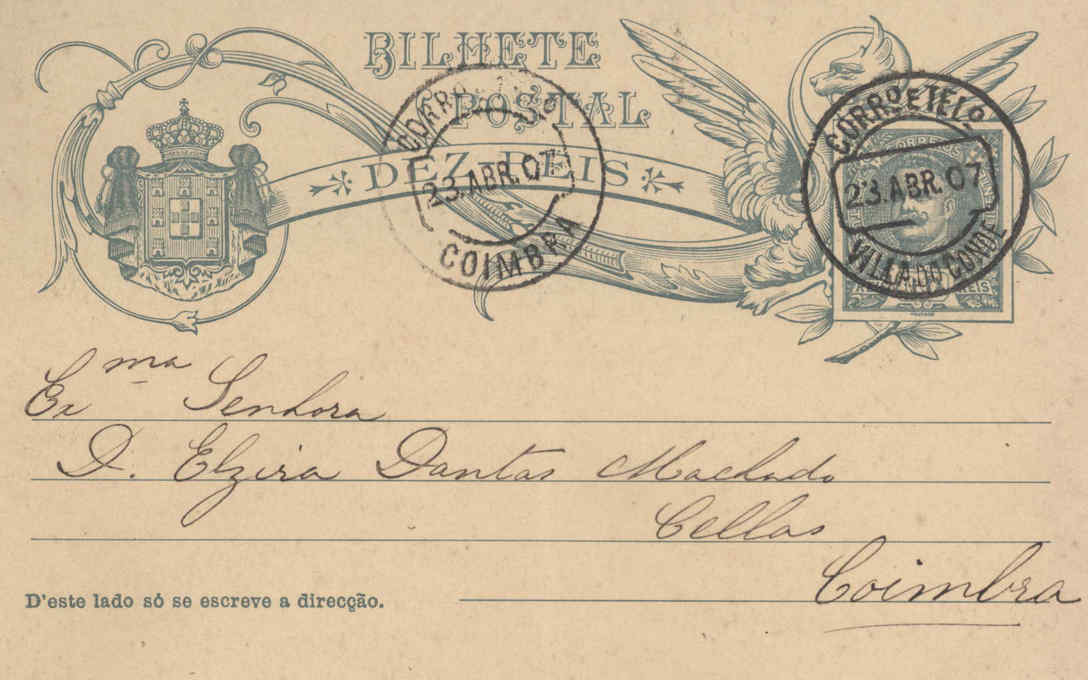 BILHETE
POSTAL
DEZ REIS
CORRO E TELO
23. ABR. 07
COIMBRA
CORRO E TELO
23. ABR. 07
VILLA DO CONDE
CORREIO
REIS
Exma Senhora
D. Elzira Dantas Machado
Cellas
Coimbra
D'este lado só se escreve a direcção.